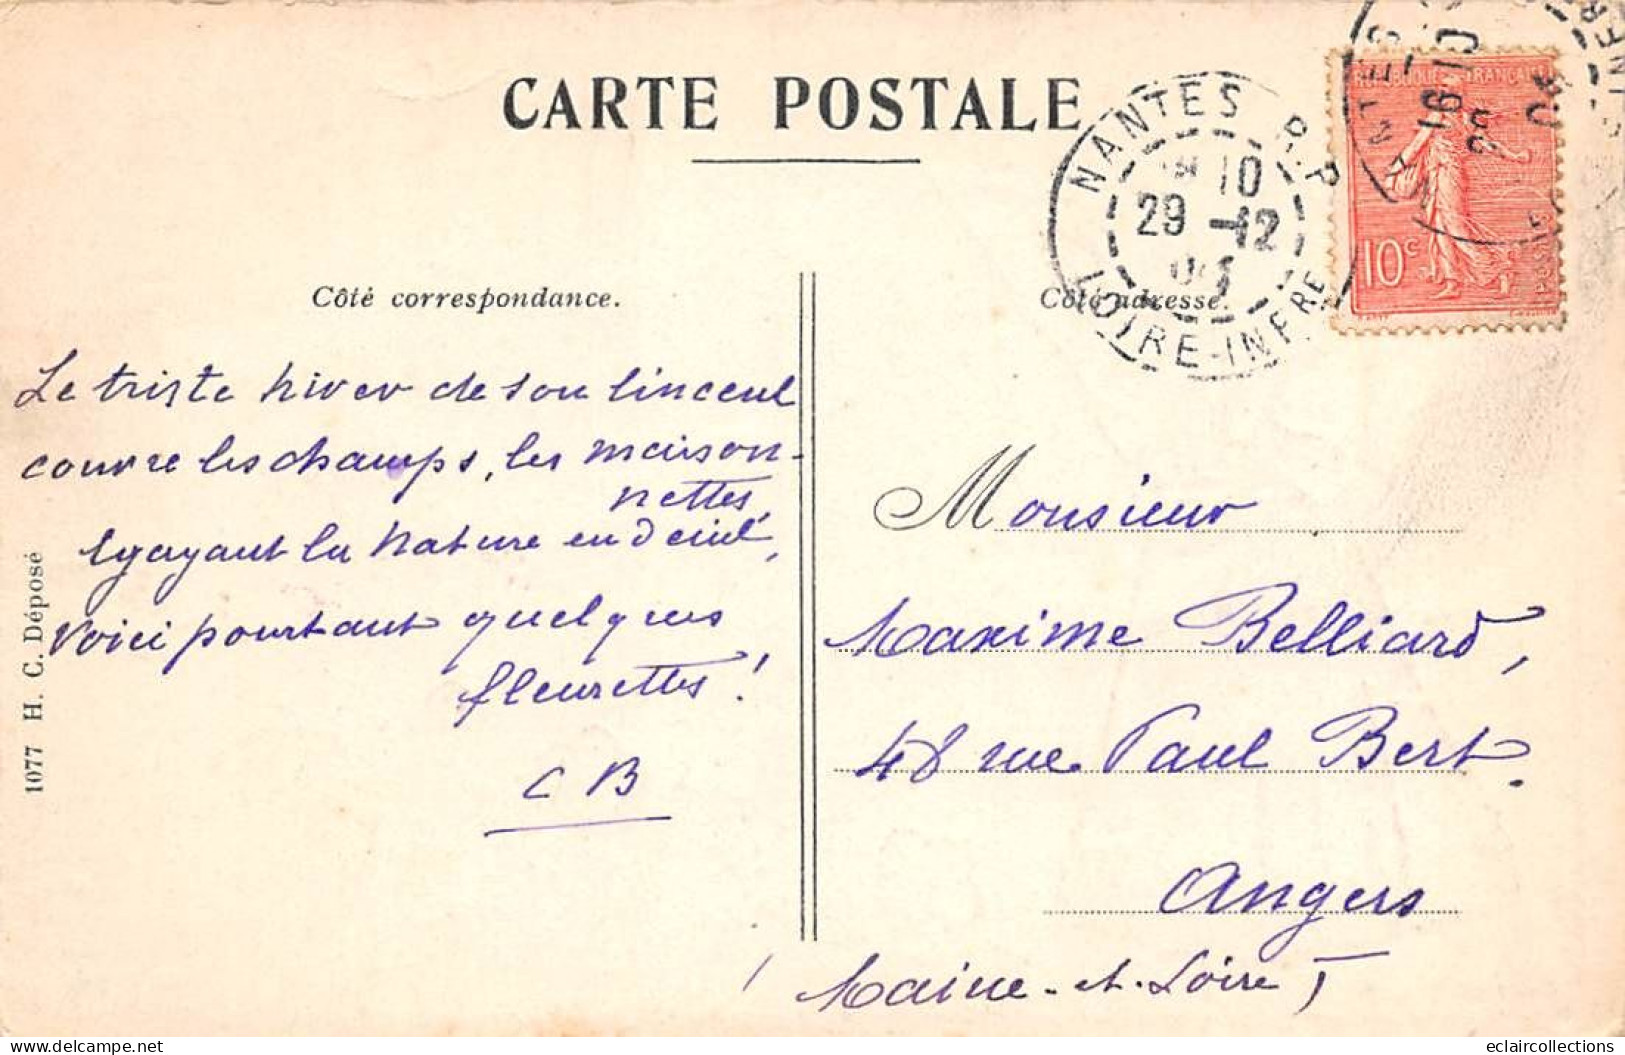 CARTE POSTALE
NANTES R.P.
10
29 -12
LOIRE-INFRE
RÉPUBLIQUE FRANÇAISE
10c
Côté correspondance.
Côté adresse.
Le triste hiver de son linceul
couvre les champs, les maison-
nettes,
Egayant la nature en deuil,
Voici pourtant quelques
fleurettes!
C B
1077 H. C. Déposé
Monsieur
Maxime Belliard,
48 rue Paul Bert.
Angers
(Maine-et-Loire)
delcampe.net
eclaircollections